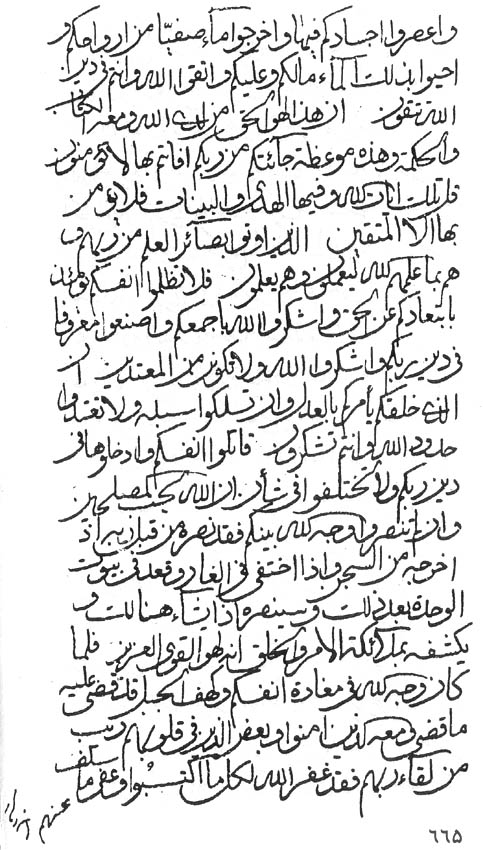 واعصروا اجسادكم فيها واخرجوا ماء صفيا من ارواحكم و
احيوا بذلك الماء مالكم وعليكم واتقوا الله وانتم في دين
الله تتقون ان هذا لهو الحق من لدى الله ومعه الكتاب
والحكمة وهذه موعظة جائتكم من ربكم افانتم بها لا تؤمنون
قل تلك ايات الله وفيها الهدى والبينات فلا يؤمن
بها الا المتقين الذين اوتوا بصائر العلم من ربهم و
هم بما علمهم الله ليعملون وهم يعلمون فلا تظلموا انفسكم
بابتعادكم عن الحق واشكروا الله باجمعكم واصنعوا معروفا
في دين ربكم واشكروا الله ولا تكونن من المعتدين ان
الذي خلقكم يأمركم بالعدل وان تسلكوا سبله ولا تعتدوا
حدود الله وانتم تشكرون قاتلوا انفسكم وادخلوها في
دين ربكم ولا تختلفوا في شأن ان الله يحب المصلحين
وان تنصروا وجه الله بينكم فقد نصره من قبل ربه اذ
اخرجه من السجن واذا اختفى في الغار وقعد في بيوت
الوحدة بعد ذلك وسينصره اذا شاء هنالك و
يكشفه بملائكة الامر والخلق انه لهو القوي العزيز فلما
كان وجه الله في مغارة انفسكم وكهف الجبل قد قضى عليه
ما قضى معه الذين امنوا وبعض الذين في قلوبهم ريب
من لقاء ربهم فقد غفر الله لكل ما اكتسبوا وعفى ما سلف
عنهم
٦٦۵